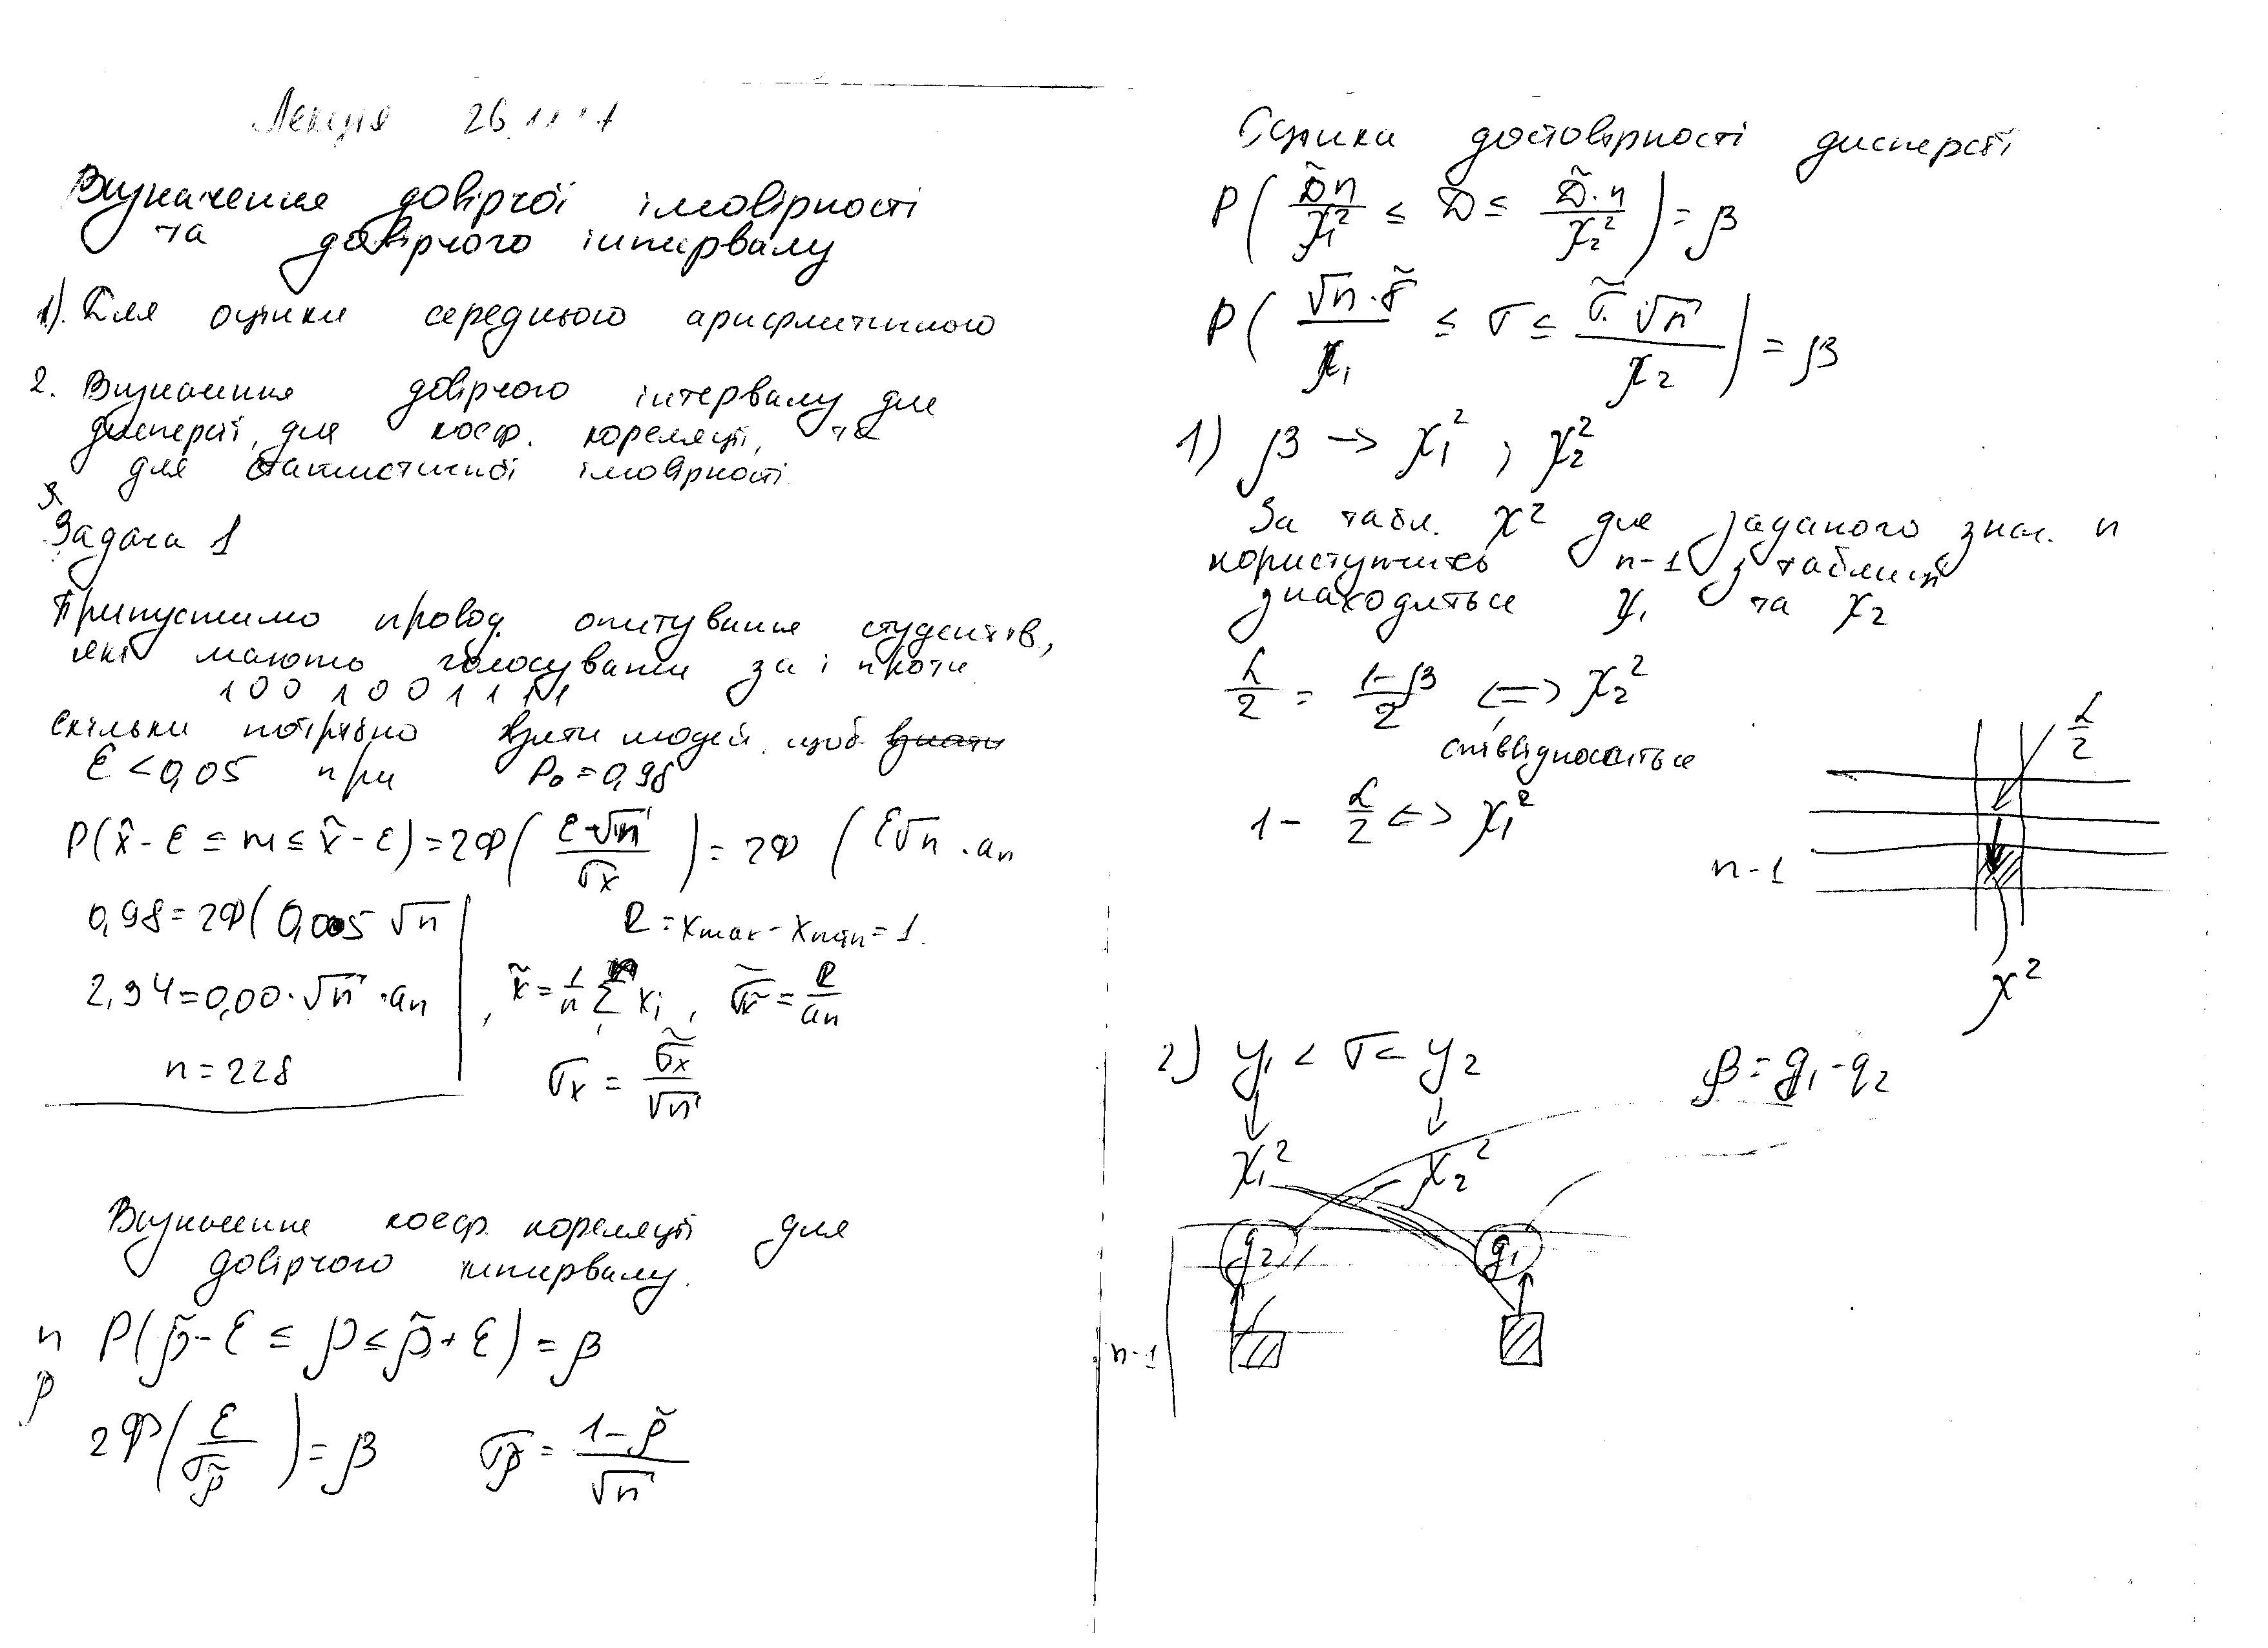 Лекція 26.11
Визначення довірчої імовірності
та довірчого інтервалу
1). Для оцінки середнього арифметичного
2. Визначення довірчого інтервалу для
дисперсії, для коеф. кореляції, та
для статистичної імовірності.
Задача 1
Припустимо провод. опитування студентів,
які мають голосувати за і проти
1 0 0 1 0 0 1 1 1 1
Скільки потрібно взяти людей, щоб
ε < 0,05 при P₀ = 0,98
P(x̃ - ε ≤ m ≤ x̃ - ε) = 2Φ( ε·√n / σx ) = 2Φ ( ε√n · an
0,98 = 2Φ( 0,005 √n
R = xmax - xmin = 1.
2,94 = 0,00·√n · an
, x̃ = 1/n Σ xi , σ̃x = R/an
n = 228
σx = σ̃x/√n
Визначення коеф. кореляції для
довірчого інтервалу.
n P(ρ̃ - ε ≤ ρ ≤ ρ̃ + ε) = β
ρ
2Φ( ε/σρ̃ ) = β σρ̃ = (1 - ρ̃)/√n
Оцінка достовірності дисперсії
P( D̃n/χ₁² ≤ D ≤ D̃·n/χ₂² ) = β
P( √n·σ̃/χ₁ ≤ σ ≤ σ̃·√n/χ₂ ) = β
1) β → χ₁² , χ₂²
За табл. χ² для заданого знач. n
користуючись n-1 з таблиці
знаходиться χ₁ та χ₂
α/2 = (1-β)/2 <=> χ₂²
співвідноситься
α/2
1 - α/2 <=> χ₁²
n-1
χ²
2) y₁ < σ < y₂ β = g₁ - g₂
χ₁² χ₂²
g₂ g₁
n-1